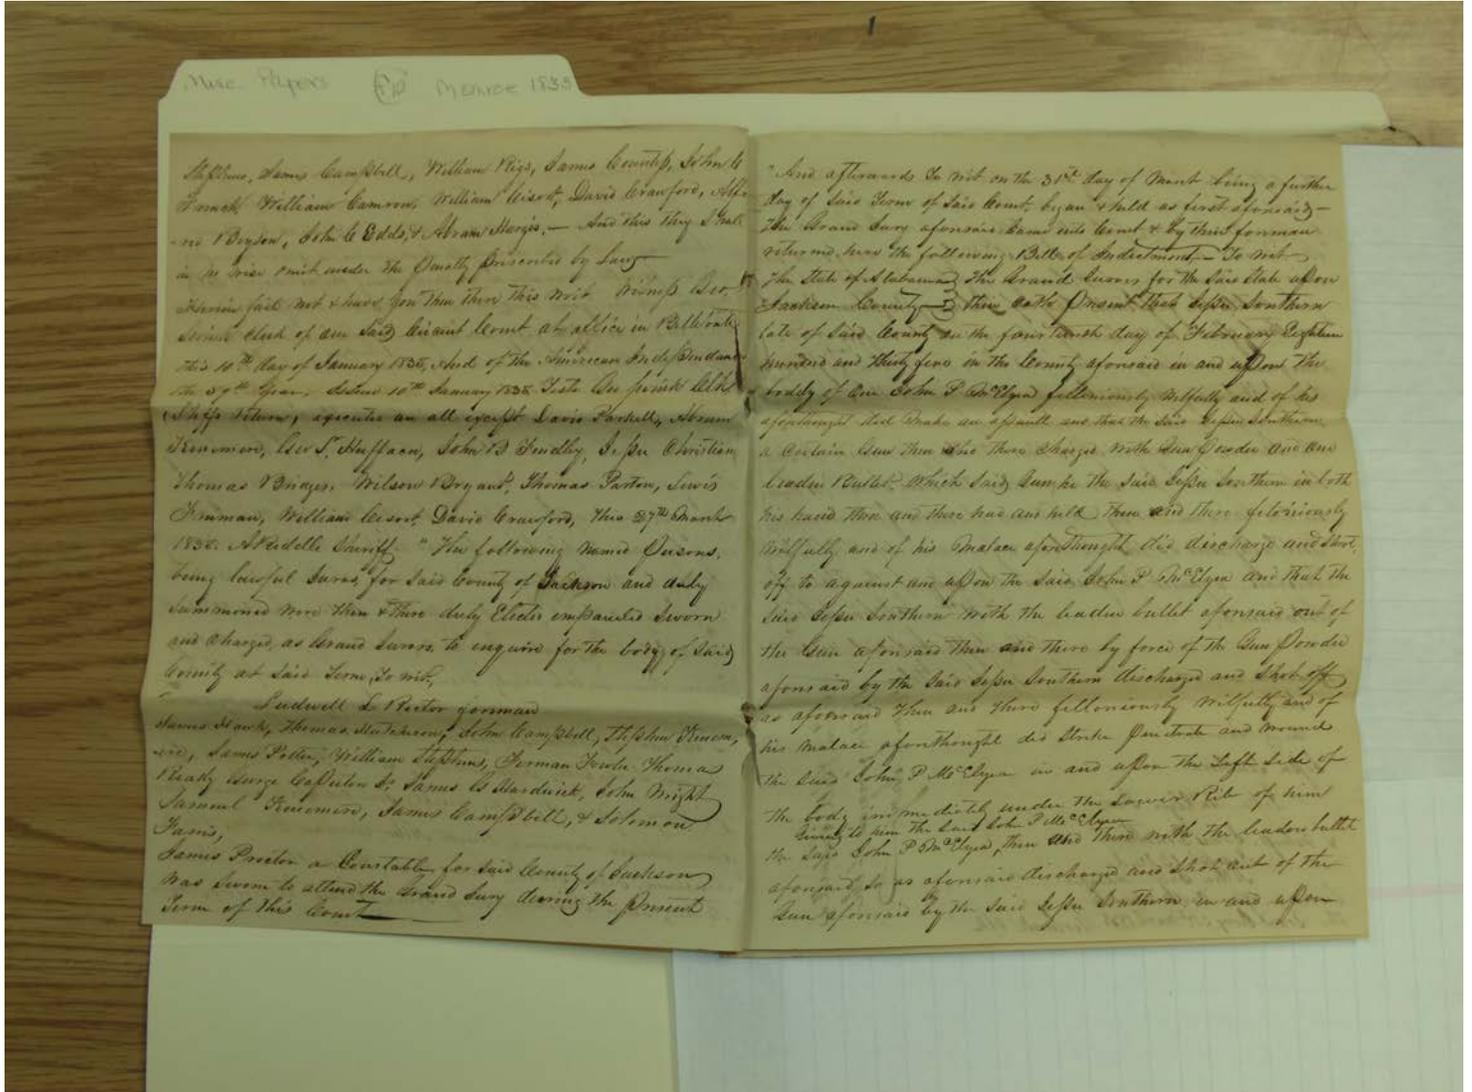 Misc. Papers Monroe 1835
Stephens, James Campbell, William Rigs, James Countess, John C
William Camron, William David Crawford, Alfr
Bryson, John C Edds, & Abram Hargis, — And this they Shall
in no wise omit under the Penalty prescribed by Law
Herein fail not & have you then there this Writ Witness Geo.
Clerk of our Said Circuit Court at office in Bellefonte
this 10th day of January 1835, And of the American Independance
the 59th Year, 10th January 1835 Teste
Return, executed on all except David Abram
Kenemore, Geo T. Huffacn, John B Findley, Jesse Christian,
Thomas Bridges, Wilson Bryant, Thomas Parton, Lewis
William David Crawford, This 27th March
1835. Sheriff. " The following named Persons,
being lawful Jurors, for Said County of Jackson and duly
Summoned were then & there duly Elected empanneled Sworn
and Charged, as Grand Jurors, to enquire for the body of Said
County at Said Term, To wit,
Ludwell L Rector forman
James Hawk, Thomas Hutcheson, John Campbell, Stephen Kenem,
ore, James Potter, William Stephens, Forman Fowler Thomas
George Caperton Sr. James G Hardwick, John Wright
Samuel Kenemore, James Campbell, & Solomon
Faris,
James Proctor a Constable, for Said County of Jackson
was Sworn to attend the Grand Jury during the present
Term of this Court
"And afterwards To wit on the 31st day of March being a further
day of Said Term of Said Court, began & held as first aforesaid —
The Grand Jury aforesaid Came into Court & by their forman
returned here the following Bill of Indictment — To wit
The State of Alabama } The Grand Jurors for the Said State upon
Jackson County } their oaths Present that Jesse Southern
late of Said County on the fourteenth day of February Eighteen
hundred and thirty five in the County aforesaid in and upon the
boddy of One John P McElyea felloniously Wilfully and of his
aforthought did Make an assault and that the Said Jesse Southern
a Certain Gun then and there Charged with Gun Powder and one
leaden Bullet, Which Said Gun he the Said Jesse Southern in both
his hand then and there had and held then and there feloniously
Wilfully and of his Malace aforthought did discharge and Shoot
off to against and upon the Said John P McElyea and that the
Said Jesse Southern with the leaden bullet aforesaid out of
the Gun aforesaid then and there by force of the Gun Powder
aforesaid by the Said Jesse Southern discharged and Shot off
as aforesaid then and there felloniously Wilfully and of
his Malace aforthought did Strike Penetrate and wound
the Said John P McElyea in and upon the Left Side of
the body immediately under the Lower Rib of him
Giving to him the Said John P McElyea
the Said John P McElyea, then and there with the leaden bullet
aforesaid, So as aforesaid discharged and Shot out of the
Gun aforesaid by the Said Jesse Southern in and upon